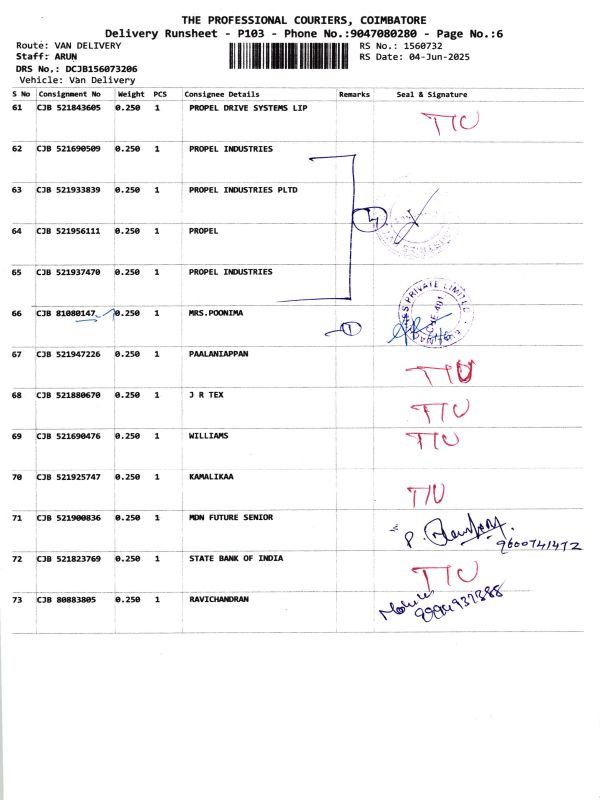 THE PROFESSIONAL COURIERS, COIMBATORE
Delivery Runsheet - P103 - Phone No.:9047080280 - Page No.:6
Route: VAN DELIVERY RS No.: 1560732
Staff: ARUN RS Date: 04-Jun-2025
DRS No.: DCJB156073206
Vehicle: Van Delivery
S No Consignment No Weight PCS Consignee Details Remarks Seal & Signature
61 CJB 521843605 0.250 1 PROPEL DRIVE SYSTEMS LIP T/U
62 CJB 521690509 0.250 1 PROPEL INDUSTRIES
63 CJB 521933839 0.250 1 PROPEL INDUSTRIES PLTD
4
64 CJB 521956111 0.250 1 PROPEL
65 CJB 521937470 0.250 1 PROPEL INDUSTRIES
66 CJB 81080147 0.250 1 MRS.POONIMA
1
PRIVATE LIMITED
67 CJB 521947226 0.250 1 PAALANIAPPAN T/U
68 CJB 521880670 0.250 1 J R TEX T/U
69 CJB 521690476 0.250 1 WILLIAMS T/U
70 CJB 521925747 0.250 1 KAMALIKAA T/U
71 CJB 521900836 0.250 1 MDN FUTURE SENIOR
9600741472
72 CJB 521823769 0.250 1 STATE BANK OF INDIA T/U
73 CJB 80883805 0.250 1 RAVICHANDRAN
9994937388